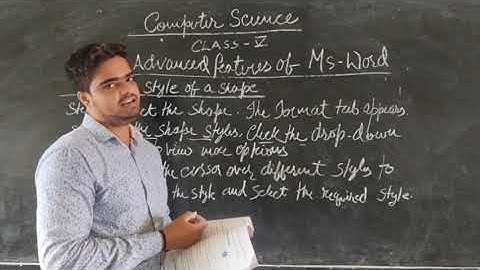 Computer Science
CLASS - V
Advanced features of Ms-Word
Style of a shape
the shape. The format tab appears.
Shape Styles, Click the drop-down
to view more options
the cursor over different styles to
the style and select the required style.